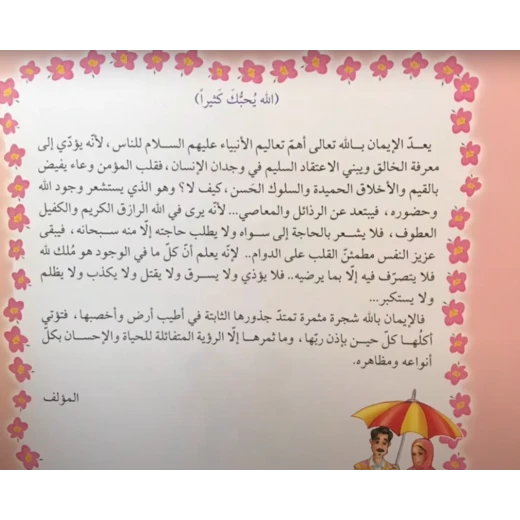 (الله يُحبُّكَ كَثيراً)
يعدّ الإيمان بالله تعالى أهمّ تعاليم الأنبياء عليهم السلام للناس، لأنّه يؤدّي إلى
معرفة الخالق ويبني الاعتقاد السليم في وجدان الإنسان، فقلب المؤمن وعاء يفيض
بالقيم والأخلاق الحميدة والسلوك الحَسن، كيف لا؟ وهو الذي يستشعر وجود الله
وحضوره، فيبتعد عن الرذائل والمعاصي... لأنّه يرى في الله الرازق الكريم والكفيل
العطوف، فلا يشعر بالحاجة إلى سواه ولا يطلب حاجته إلّا منه سبحانه، فيبقى
عزيز النفس مطمئنّ القلب على الدوام.. لإنّه يعلم أنّ كلّ ما في الوجود هو مُلك لله
فلا يتصرّف فيه إلّا بما يرضيه.. فلا يؤذي ولا يسرق ولا يقتل ولا يكذب ولا يظلم
ولا يستكبر...
فالإيمان بالله شجرة مثمرة تمتدّ جذورها الثابتة في أطيب أرض وأخصبها، فتؤتي
أكلُها كلّ حين بإذن ربّها، وما ثمرها إلّا الرؤية المتفائلة للحياة والإحسان بكلّ
أنواعه ومظاهره.
المؤلف